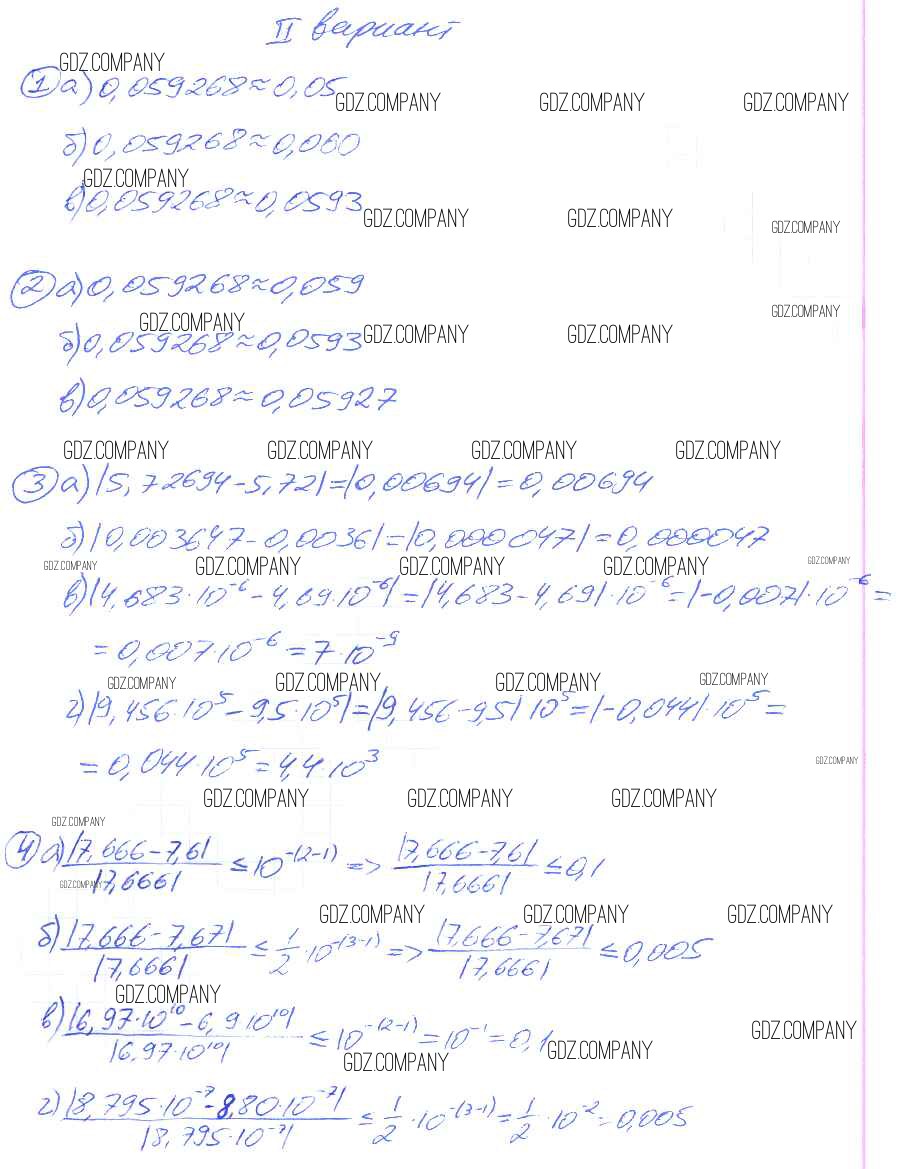 II вариант
GDZ.COMPANY
① а) 0,059268≈0,05
GDZ.COMPANY GDZ.COMPANY GDZ.COMPANY
б) 0,059268≈0,060
GDZ.COMPANY
в) 0,059268≈0,0593
GDZ.COMPANY GDZ.COMPANY GDZ.COMPANY
② а) 0,059268≈0,059
GDZ.COMPANY
GDZ.COMPANY GDZ.COMPANY GDZ.COMPANY
б) 0,059268≈0,0593
в) 0,059268≈0,05927
GDZ.COMPANY GDZ.COMPANY GDZ.COMPANY GDZ.COMPANY
③ а) |5,72694-5,72|=|0,00694|=0,00694
б) |0,003647-0,0036|=|0,000047|=0,000047
GDZ.COMPANY GDZ.COMPANY GDZ.COMPANY GDZ.COMPANY GDZ.COMPANY
в) |4,683·10⁻⁶-4,69·10⁻⁶|=|4,683-4,69|·10⁻⁶=|-0,007|·10⁻⁶=
=0,007·10⁻⁶=7·10⁻⁹
GDZ.COMPANY GDZ.COMPANY GDZ.COMPANY GDZ.COMPANY
г) |9,456·10⁵-9,5·10⁵|=|9,456-9,5|10⁵=|-0,044|·10⁵=
=0,044·10⁵=4,4·10³
GDZ.COMPANY
GDZ.COMPANY GDZ.COMPANY GDZ.COMPANY
GDZ.COMPANY
④ а) |7,666-7,6|/|7,666| ≤ 10⁻⁽²⁻¹⁾ => |7,666-7,6|/|7,666| ≤ 0,1
GDZ.COMPANY
GDZ.COMPANY GDZ.COMPANY GDZ.COMPANY
б) |7,666-7,67|/|7,666| ≤ 1/2·10⁻⁽³⁻¹⁾ => |7,666-7,67|/|7,666| ≤ 0,005
GDZ.COMPANY
в) |6,97·10¹⁰-6,9 10¹⁰|/|6,97·10¹⁰| ≤ 10⁻⁽²⁻¹⁾=10⁻¹=0,1
GDZ.COMPANY GDZ.COMPANY GDZ.COMPANY
г) |8,795·10⁻⁷-8,80·10⁻⁷|/|8,795·10⁻⁷| ≤ 1/2·10⁻⁽³⁻¹⁾=1/2·10⁻²=0,005